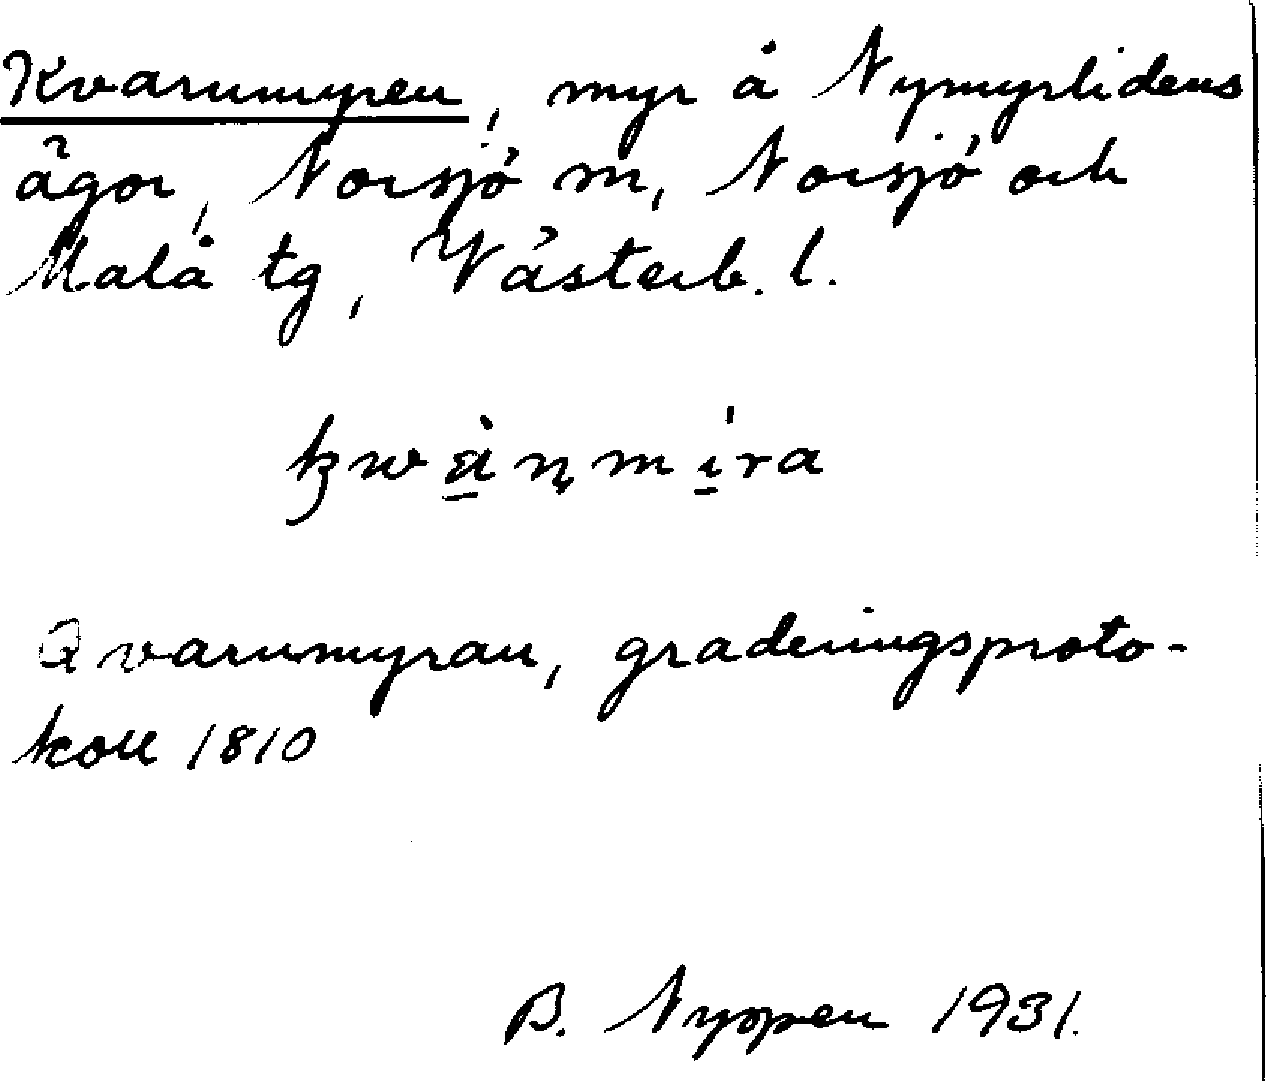 Kvarnmyren, myr å Nymyrlidens
ägor, Norsjö sn, Norsjö och
Malå tg, Västerb. l.
Qvarnmyran, graderingsproto-
koll 1810
B. 1931.